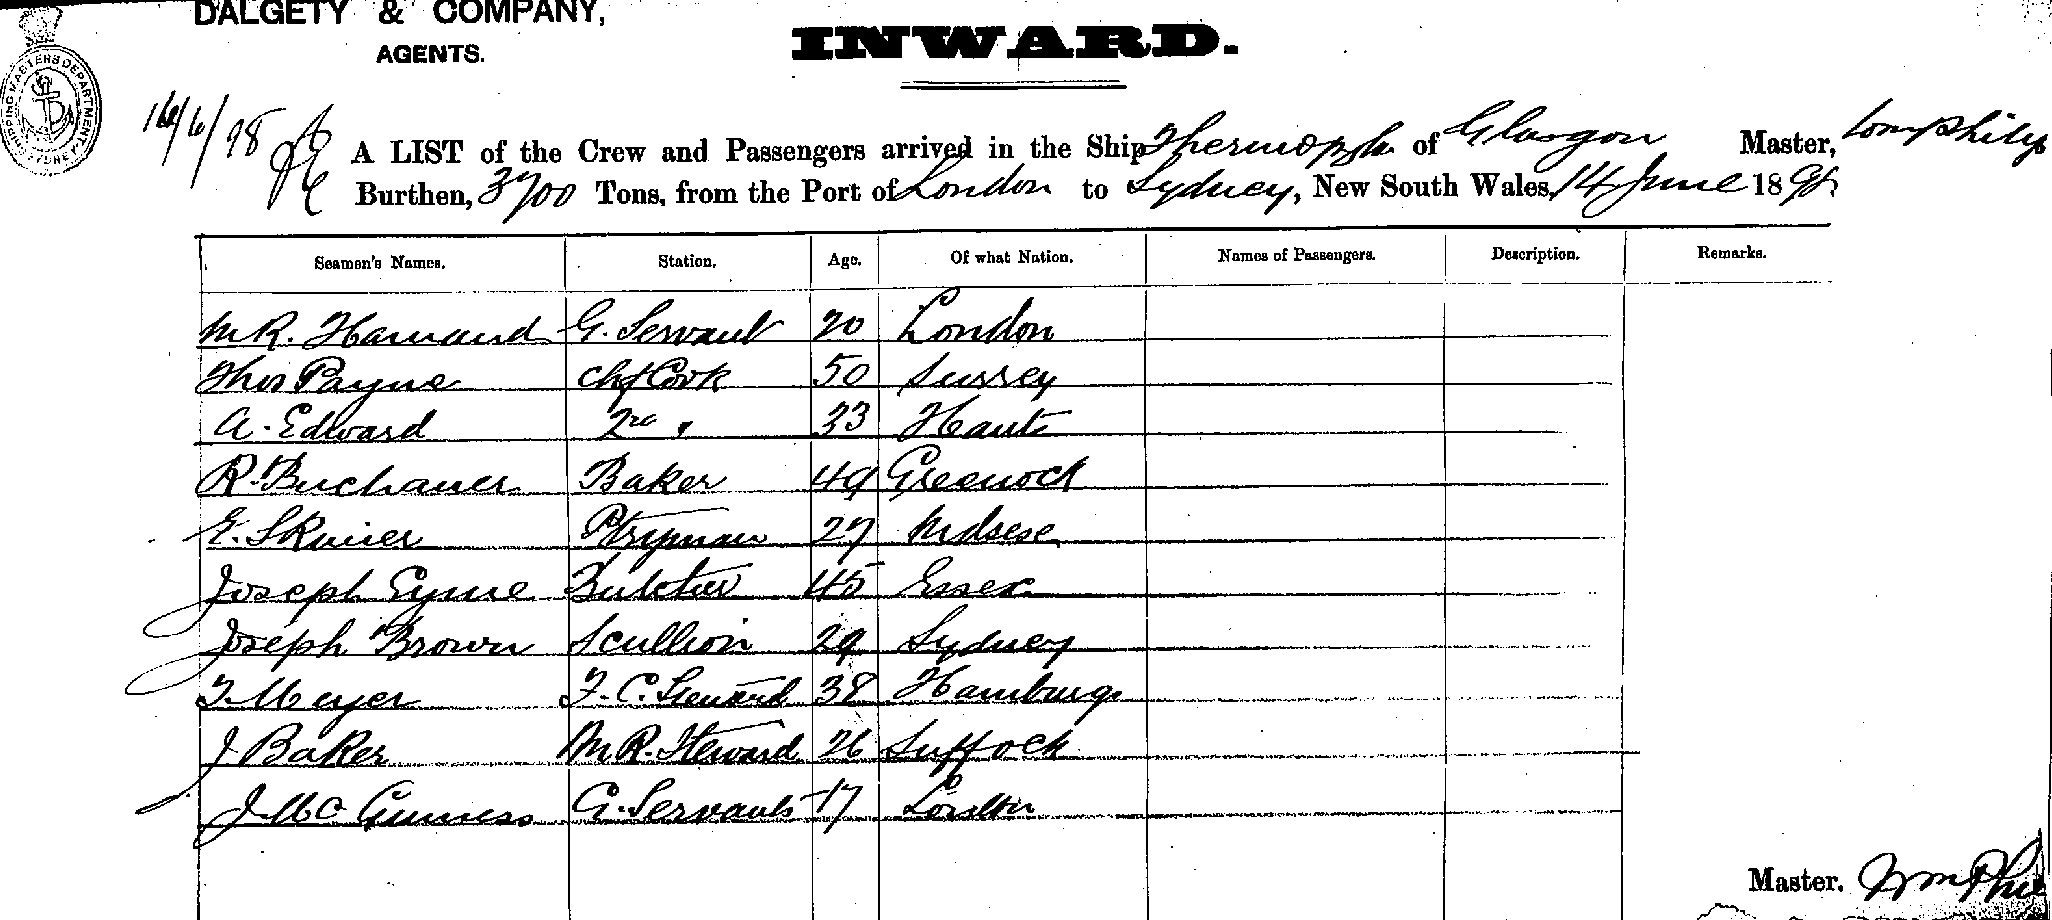 DALGETY & COMPANY,
AGENTS.
INWARD.
SHIPPING MASTERS DEPARTMENT SYDNEY
16/6/98
A LIST of the Crew and Passengers arrived in the Ship Thermopylæ of Glasgow Master, Wm Philip
Burthen, 3700 Tons, from the Port of London to Sydney, New South Wales, 14 June 1898
Seamen's Names. Station. Age. Of what Nation. Names of Passengers. Description. Remarks.
M R. Hamand G. Servant 20 London
Thos Payne Chf Cook 50 Surrey
A. Edward 2nd " 33 Hants
R. Buchaner Baker 49 Greenock
E. Skinner Ptryman 27 Mdsesx
Joseph Eyure Butcher 45 Essex
Joseph Brown Scullion 29 Sydney
F. Meyer F. C. Steward 38 Hamburg
J Baker M R. Steward 26 Suffock
J. Mc Guiness G. Servants 17 London
Master. Wm Phi